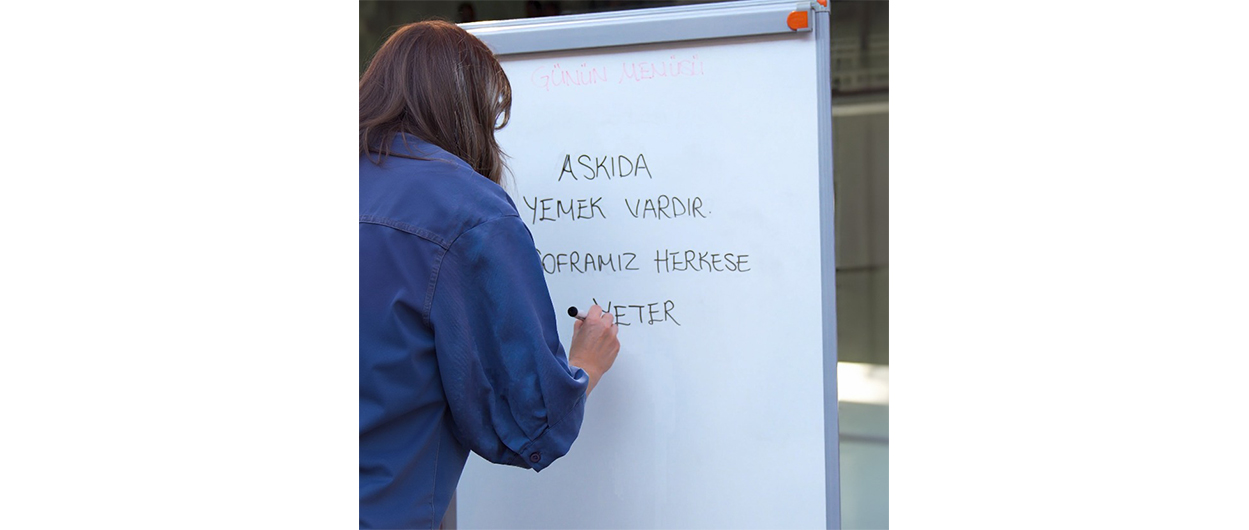 GÜNÜN MENÜSÜ
ASKIDA
YEMEK VARDIR.
SOFRAMIZ HERKESE
YETER